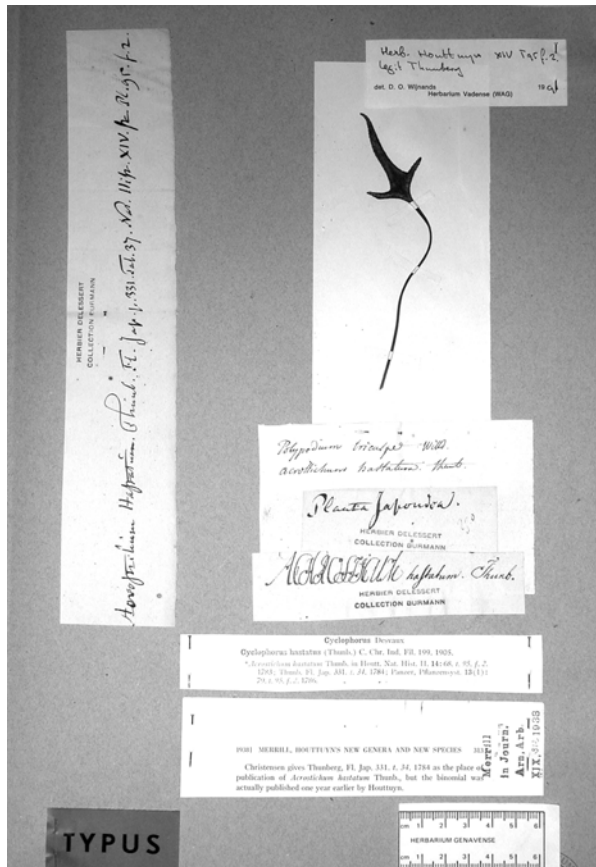 Herb. Houttuyn XIV T95 f. 2.
legit Thunberg
det. D. O. Wijnands 19
Herbarium Vadense (WAG)
Acrostichum Hastatum. Thunb. Fl. Jap. p. 331. tab. 37. Nat. XIV. Pl. 95. f. 2.
HERBIER DELESSERT
COLLECTION BURMANN
Polypodium tricuspe Willd.
acrostichum hastatum. thunb.
Planta Japonica.
HERBIER DELESSERT
COLLECTION BURMANN
ACROSTICHUM hastatum. Thunb.
HERBIER DELESSERT
COLLECTION BURMANN
Cyclophorus Desvaux
Cyclophorus hastatus (Thunb.) C. Chr. Ind. Fil. 199, 1905.
*Acrostichum hastatum Thunb. in Houtt. Nat. Hist. II. 14: 68. t. 95. f. 2.
1783; Thunb. Fl. Jap. 331. t. 34. 1784; Panzer, Pflanzensyst. 13(1):
79. t. 95. f. 2. 1786.
1938] MERRILL, HOUTTUYN'S NEW GENERA AND NEW SPECIES 313
Christensen gives Thunberg, Fl. Jap. 331. t. 34. 1784 as the place of
publication of Acrostichum hastatum Thunb., but the binomial was
actually published one year earlier by Houttuyn.
Merrill
in Journ.
Arn. Arb.
XIX, 1938
TYPUS
cm 1 2 3 4 5 6
HERBARIUM GENAVENSE
cm 1 2 3 4 5 6